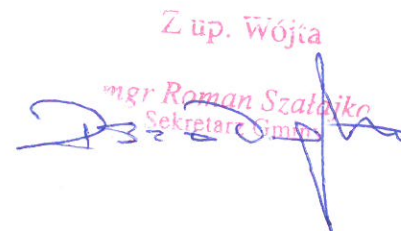 Z up. Wójta
mgr Roman Szałajko
Sekretarz Gminy